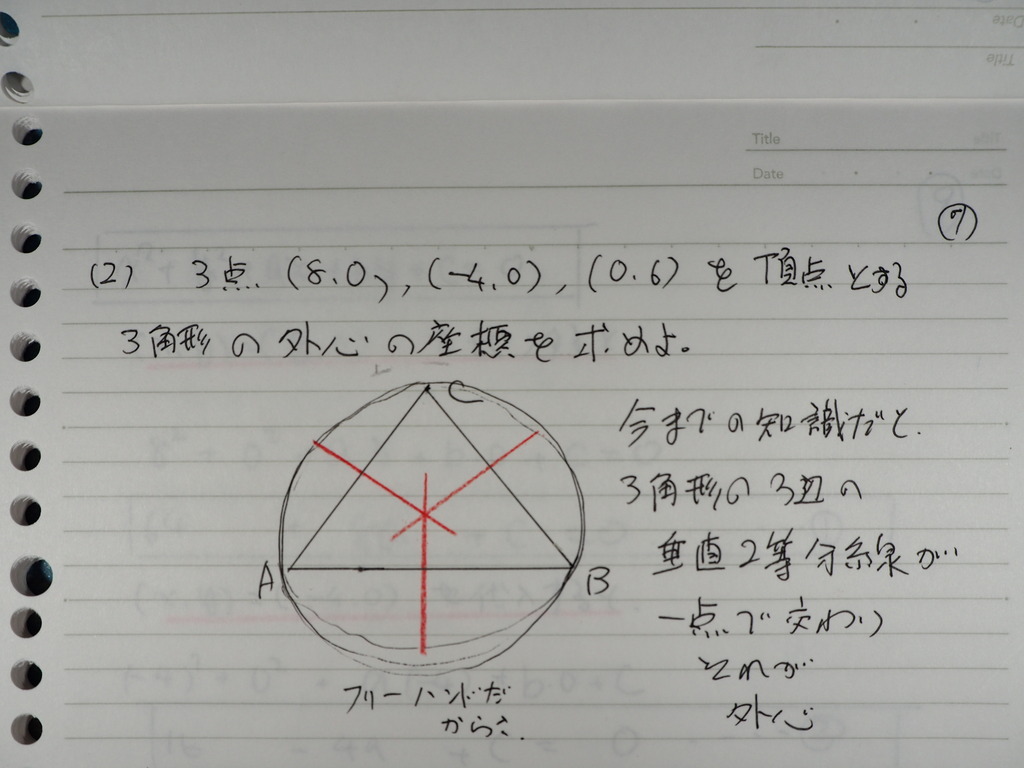 Title
Date
⑦
(2) 3点 (8.0), (-4.0), (0.6) を頂点とする
3角形の外心の座標を求めよ。
C
A
B
今までの知識だと、
3角形の3辺の
垂直2等分線が
一点で交わり
それが
外心
フリーハンドだ
から